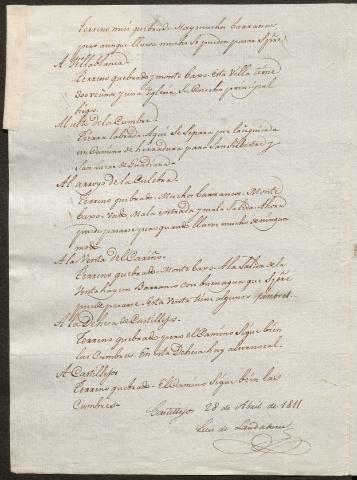 terreno mui quebrado. Hay muchos barrancos,
pero aunque llueva mucho se pueden pasar Spre.
A Villablanca.
Terreno quebrado y monte baxo. Esta Villa tiene
300 vecinos y una Yglesia. Su Cosecha principal
higos.
Malo de la Cumbre.
Tierra labrada. Aqui se separa por la izquierda
un Camino de herradura para San Silbestre y
San Lucar de Guadiana.
Al arroyo de la Culebra.
Terreno quebrado. Muchos barrancos. Monte
baxo. Vado. Mala entrada y mala salida. Ahora
puede pasarse pero quando llueve mucho de ningun
modo.
A la Venta del Cariño.
Terreno quebrado. Monte baxo. A la salida de la
Venta hay un Barranco con buen agua que Spre.
puede pasarse. Esta Venta tiene algunos
A la Dehesa de Castillejos.
Terreno quebrado pero el Camino sigue bien
las Cumbres. En esta Dehesa hay
A Castillejos
Terreno quebrado. El Camino sigue bien las
Cumbres.
Castillejos 28 de Abril de 1811
Luis de Landaburu